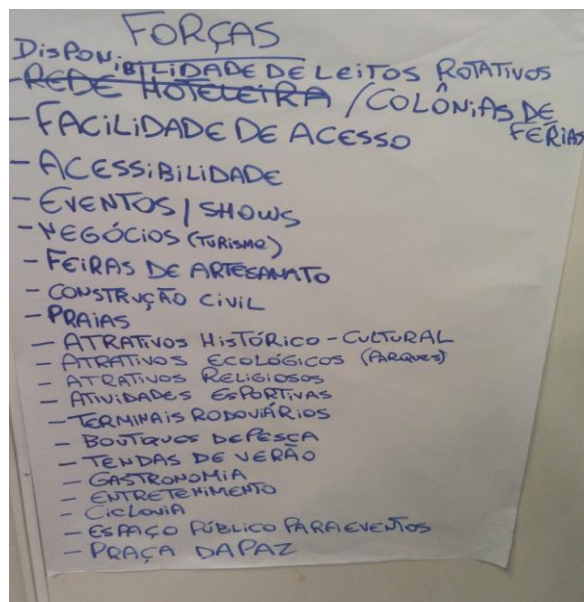 FORÇAS
DISPONIBILIDADE DE LEITOS ROTATIVOS
- REDE HOTELEIRA / COLÔNIAS DE FÉRIAS
- FACILIDADE DE ACESSO
- ACESSIBILIDADE
- EVENTOS / SHOWS
- NEGÓCIOS (TURISMO)
- FEIRAS DE ARTESANATO
- CONSTRUÇÃO CIVIL
- PRAIAS
- ATRATIVOS HISTÓRICO - CULTURAL
- ATRATIVOS ECOLÓGICOS (PARQUES)
- ATRATIVOS RELIGIOSOS
- ATIVIDADES ESPORTIVAS
- TERMINAIS RODOVIÁRIOS
- BOUTIQUES DE PESCA
- TENDAS DE VERÃO
- GASTRONOMIA
- ENTRETENIMENTO
- CICLOVIA
- ESPAÇO PÚBLICO PARA EVENTOS
- PRAÇA DA PAZ